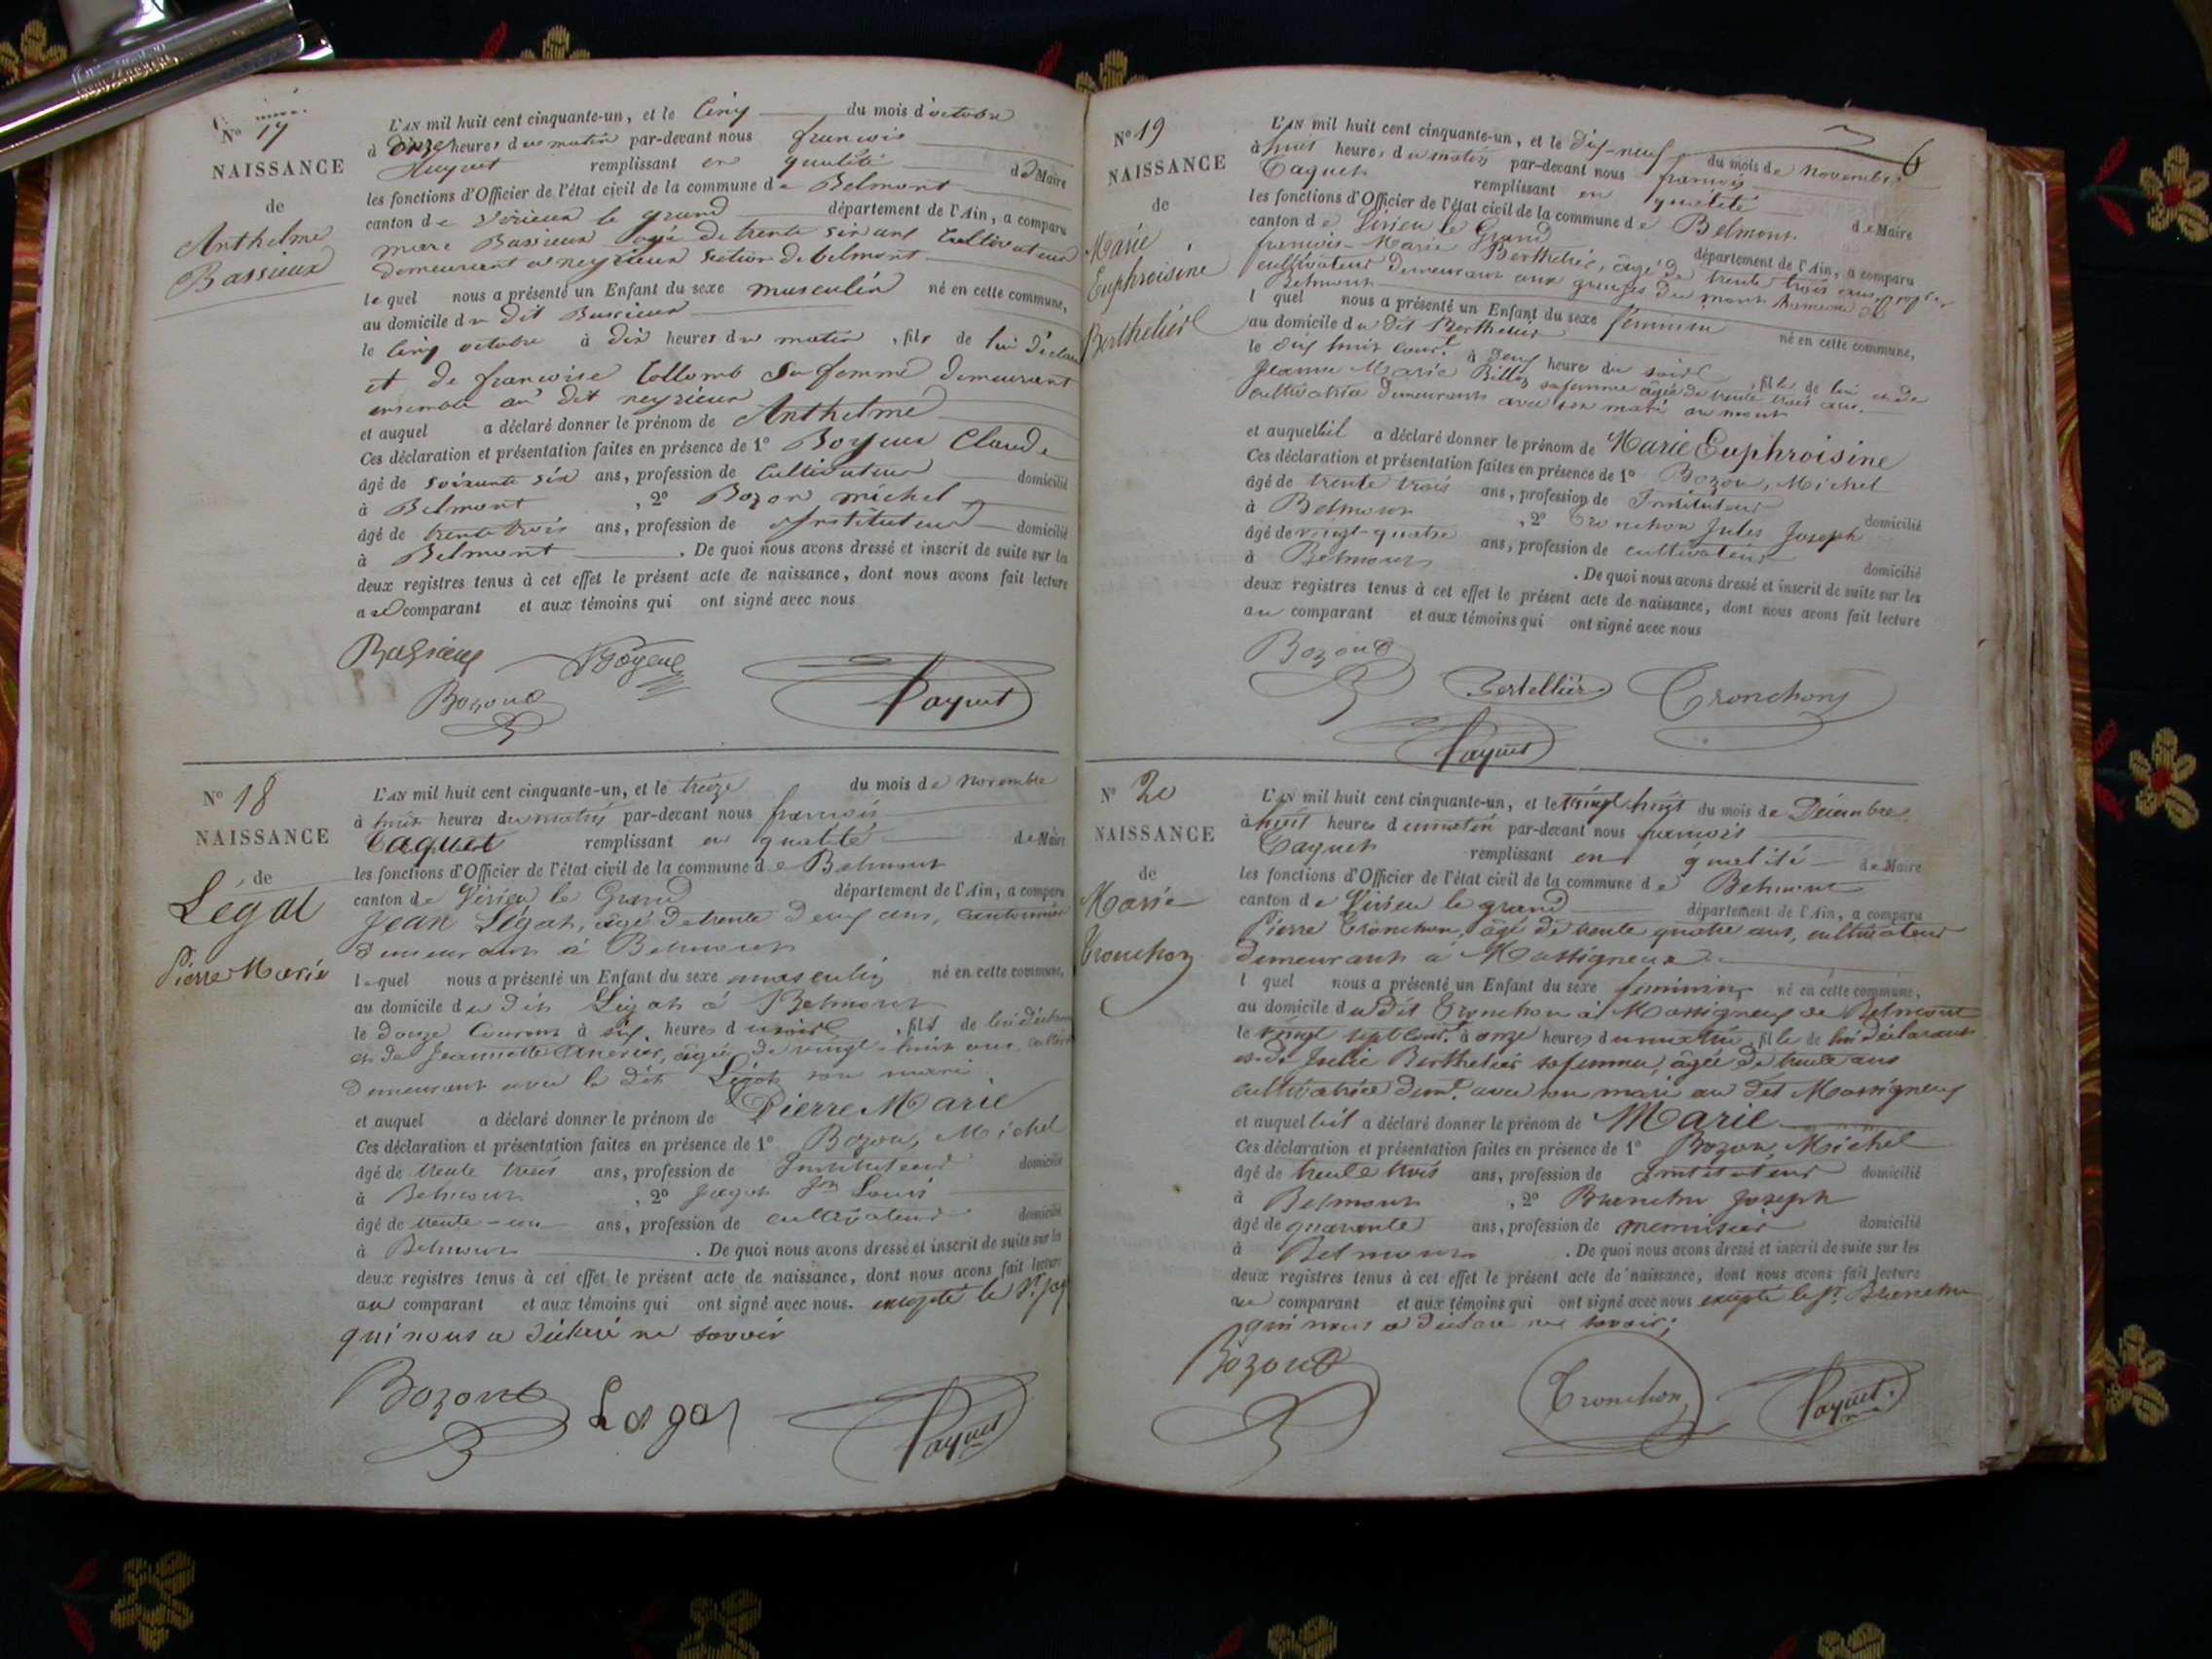 N° 17
NAISSANCE
de
Anthelme
Bassieux
L'AN mil huit cent cinquante-un, et le cinq du mois d'octobre
à onze heures du matin par-devant nous francois
remplissant en qualité de Maire
les fonctions d'Officier de l'état civil de la commune de Belmont
canton de Virieux le grand département de l'Ain, a comparu
marc Bassieux âgé de trente six ans Cultivateur
demeurant a neyrieux section de belmont
lequel nous a présenté un Enfant du sexe masculin né en cette commune,
au domicile du dit Bassieux
le cinq octobre à dix heures du matin, fils de lui déclarant
et de francoise Collomb Sa femme demeurant
ensemble au dit neyrieux
et auquel a déclaré donner le prénom de Anthelme
Ces déclaration et présentation faites en présence de 1° Boyeux Claude
âgé de soixante six ans, profession de Cultivateur domicilié
à Belmont, 2° Bozon michel
âgé de trente trois ans, profession de Instituteur domicilié
à Belmont. De quoi nous avons dressé et inscrit de suite sur les
deux registres tenus à cet effet le présent acte de naissance, dont nous avons fait lecture
au comparant et aux témoins qui ont signé avec nous
Bassieux Boyeux
Bozon Paquet
N° 18
NAISSANCE
de
Légat
Pierre Marie
L'AN mil huit cent cinquante-un, et le treize du mois de Novembre
à huit heures du matin par-devant nous francois
Paquet remplissant en qualité de Maire
les fonctions d'Officier de l'état civil de la commune de Belmont
canton de Virieu le Grand département de l'Ain, a comparu
Jean Légat, âgé de trente deux ans, cantonnier
demeurant à Belmont
lequel nous a présenté un Enfant du sexe masculin né en cette commune,
au domicile du dit Légat à Belmont
le douze Courant à six heures du soir, fils de lui déclarant
et de Jeannette âgée de vingt-huit ans
demeurant avec le dit Légat son mari
et auquel a déclaré donner le prénom de Pierre Marie
Ces déclaration et présentation faites en présence de 1° Bozon, Michel
âgé de trente trois ans, profession de Instituteur domicilié
à Belmont, 2° Jn Louis
âgé de trente-un ans, profession de cultivateur domicilié
à Belmont. De quoi nous avons dressé et inscrit de suite sur les
deux registres tenus à cet effet le présent acte de naissance, dont nous avons fait lecture
au comparant et aux témoins qui ont signé avec nous. excepté le Sr
qui nous a déclaré ne savoir
Bozon Légat Paquet
6
N° 19
NAISSANCE
de
Marie
Euphroisine
Berthelier
L'AN mil huit cent cinquante-un, et le dix-neuf du mois de Novembre
à huit heures du matin par-devant nous francois
Paquet remplissant en qualité de Maire
les fonctions d'Officier de l'état civil de la commune de Belmont
canton de Virieu le Grand département de l'Ain, a comparu
francois-Marie Berthelier, âgé de trente trois ans,
cultivateur demeurant aux granges du mont hameau de
Belmont
lquel nous a présenté un Enfant du sexe féminin né en cette commune,
au domicile du dit Berthelier
le dix huit Cour.t à deux heures du soir, fille de lui et de
Jeanne Marie Billoz sa femme âgée de trente trois ans
cultivatrice demeurant avec son mari au mont
et auquel a déclaré donner le prénom de Marie Euphroisine
Ces déclaration et présentation faites en présence de 1° Bozon, Michel
âgé de trente trois ans, profession de Instituteur domicilié
à Belmont, 2° Tronchon Jules Joseph
âgé de vingt-quatre ans, profession de cultivateur domicilié
à Belmont. De quoi nous avons dressé et inscrit de suite sur les
deux registres tenus à cet effet le présent acte de naissance, dont nous avons fait lecture
au comparant et aux témoins qui ont signé avec nous
Bozon Bertellier Tronchon
Paquet
N° 20
NAISSANCE
de
Marie
Tronchon
L'AN mil huit cent cinquante-un, et le vingt huit du mois de Décembre
à huit heures du matin par-devant nous francois
Paquet remplissant en qualité de Maire
les fonctions d'Officier de l'état civil de la commune de Belmont
canton de Virieu le grand département de l'Ain, a comparu
Pierre Tronchon, âgé de trente quatre ans, cultivateur
demeurant à Massigneux
lquel nous a présenté un Enfant du sexe féminin né en cette commune,
au domicile du dit Tronchon à Massigneux de Belmont
le vingt sept Cour.t à onze heures du matin, fille de lui déclarant
et de Julie Berthelier sa femme, âgée de trente ans
cultivatrice dem.t avec son mari au dit Massigneux
et auquel a déclaré donner le prénom de Marie
Ces déclaration et présentation faites en présence de 1° Bozon, Michel
âgé de trente trois ans, profession de Instituteur domicilié
à Belmont, 2° Joseph
âgé de quarante ans, profession de menuisier domicilié
à Belmont. De quoi nous avons dressé et inscrit de suite sur les
deux registres tenus à cet effet le présent acte de naissance, dont nous avons fait lecture
au comparant et aux témoins qui ont signé avec nous excepté le Sr
qui nous a déclaré ne savoir;
Bozon Tronchon Paquet